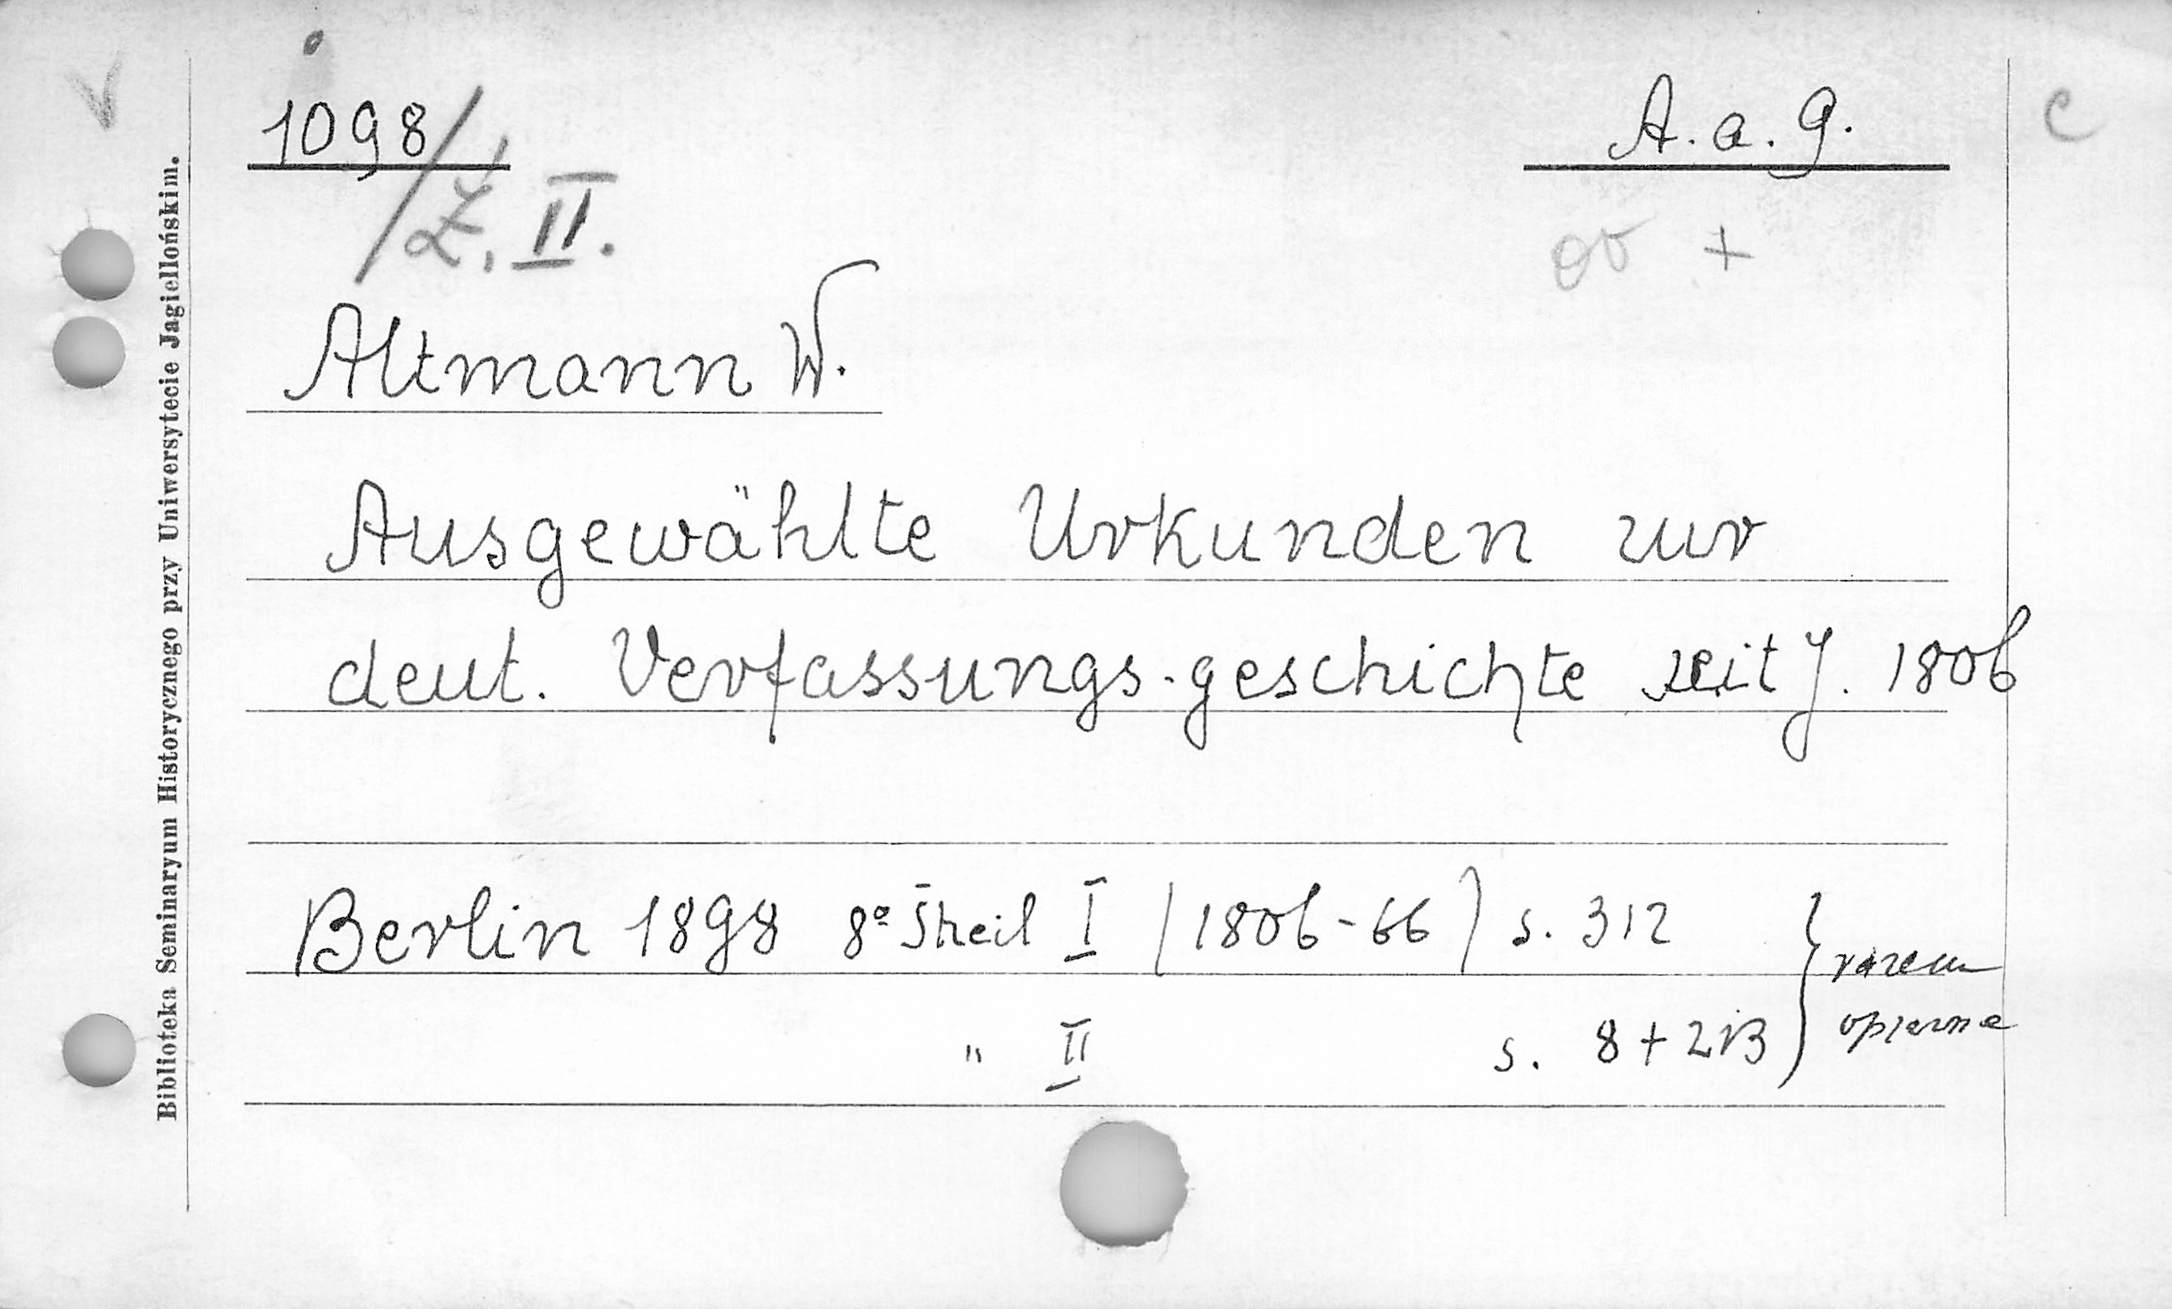 V
1098/Ż. II.
A. a. 9.
c
+
Altmann W.
Ausgewählte Urkunden zur
deut. Verfassungs-geschichte seit J. 1806
Berlin 1898 8° Theil I (1806-66) s. 312
" II s. 8 + 213
} razem
oprawne
Biblioteka Seminaryum Historycznego przy Uniwersytecie Jagiellońskim.